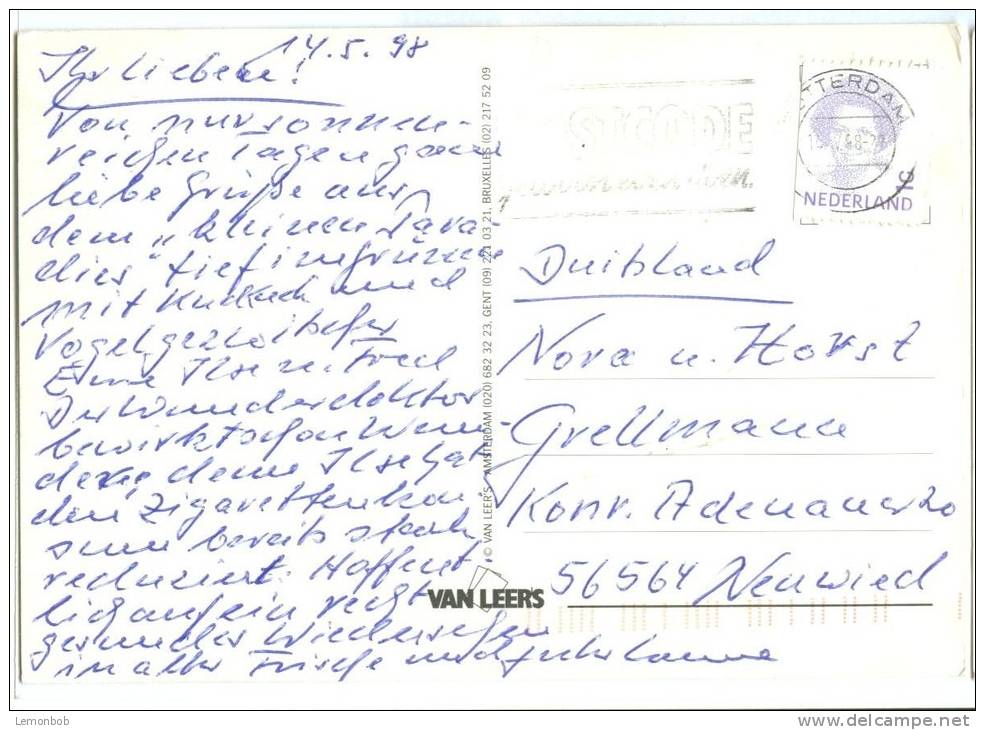 14.5.98
Ihr Lieben!
Von nur sonnen-
reichen Tagen ganz
liebe Grüße aus
dem „kleinen Para-
dies" tief im Grünen
mit Kuckuck und
Vogelgezwitscher
Eure Ilse u. Fred
Der Wunderdoktor
bewirkt schon Wun-
der denn Ilse hat
den Zigarettenkon-
sum bereits stark
reduziert. Hoffent-
lich auf ein recht
gesundes Wiedersehen
in alter Frische und guter Laune
© VAN LEER'S - AMSTERDAM (020) 682 32 23, GENT (09) 221 03 21, BRUXELLES (02) 217 52 09
VAN LEER'S
TTERDAM
NEDERLAND
Duitsland
Nora u. Horst
Grellmann
Konr. Adenauer 20
56564 Neuwied
Lemonbob
www.delcampe.net